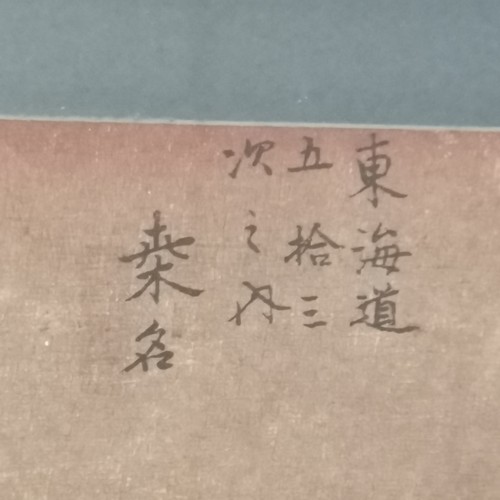 東海道
五拾三
次之内
桑名